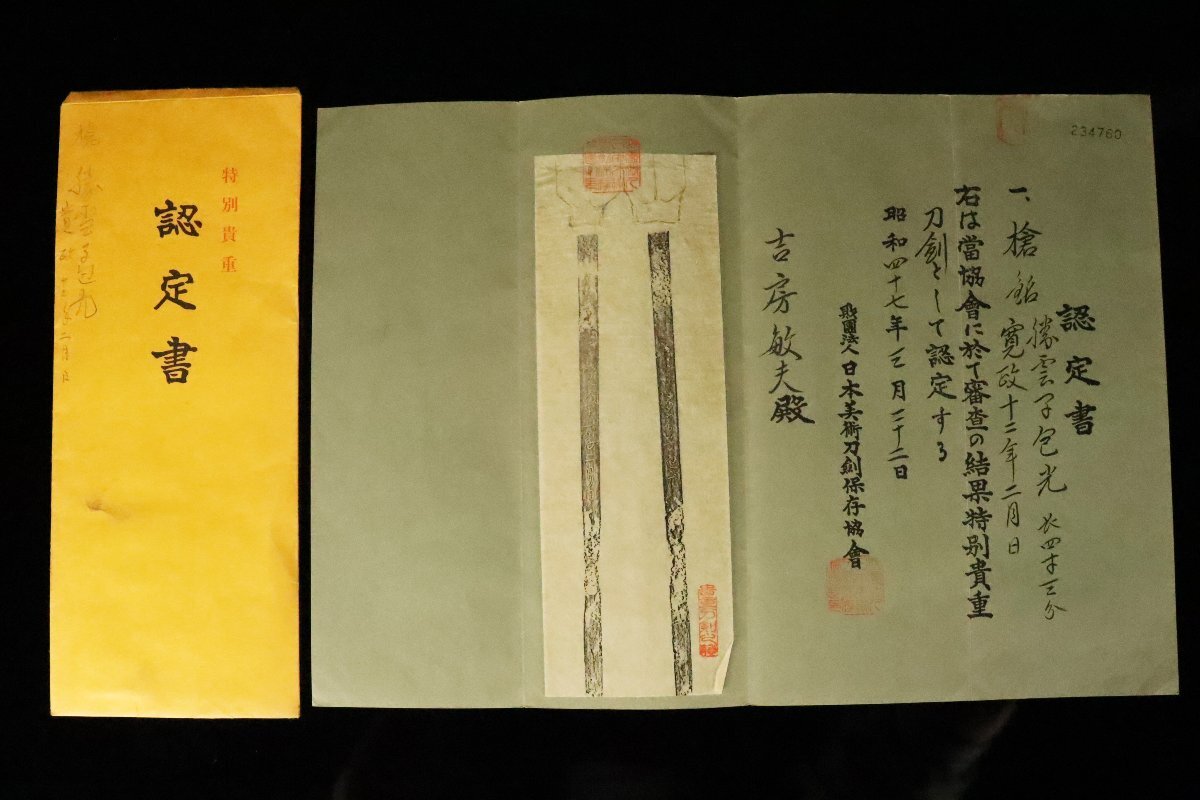 特別貴重
認定書
槍
勝雲子包光
234760
認定書
一、槍 銘 勝雲子包光 長四寸三分
寛政十二年二月日
右は當協會に於て審査の結果特別貴重
刀劍として認定する
昭和四十七年三月二十二日
財團法人日本美術刀劍保存協會
吉房敏夫殿